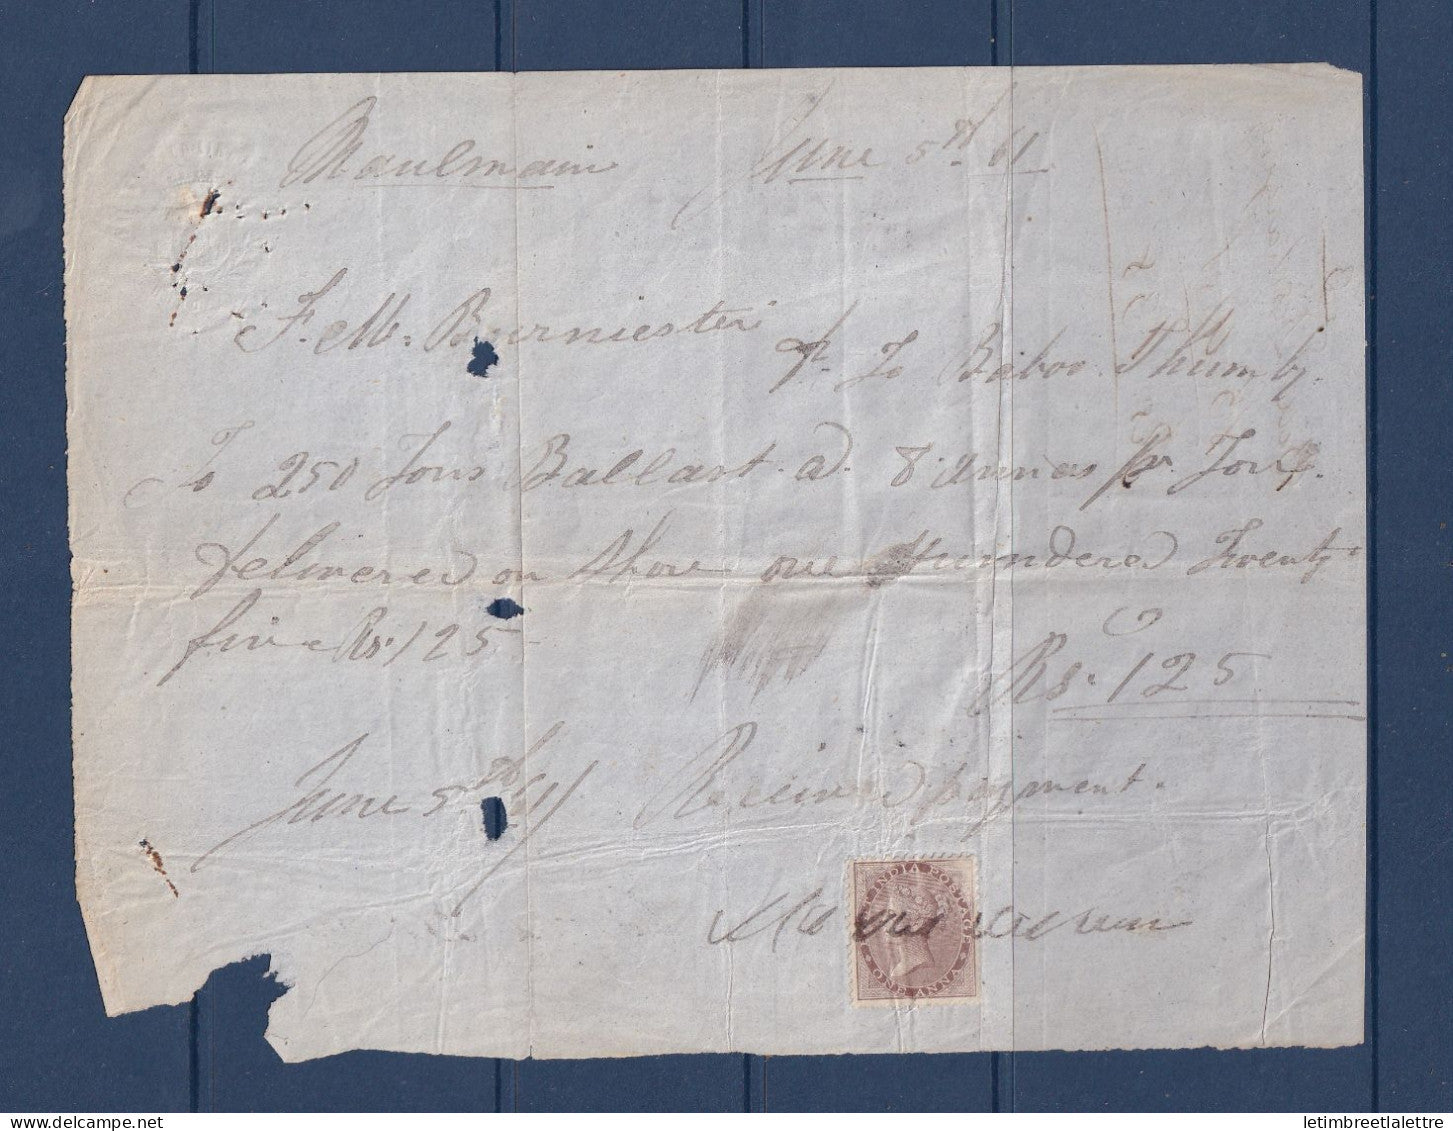 Maulmain June 5th 61
F. M. Burmester
To Baboo Thumby.
To 250 Tons Ballast a 8 annas pr. Ton
delivered on Shore one Hundered Twenty
five Rs. 125
Rs. 125
June 5th 61 Received payment.
INDIA POSTAGE
ONE ANNA
letimbreetlalettre.com